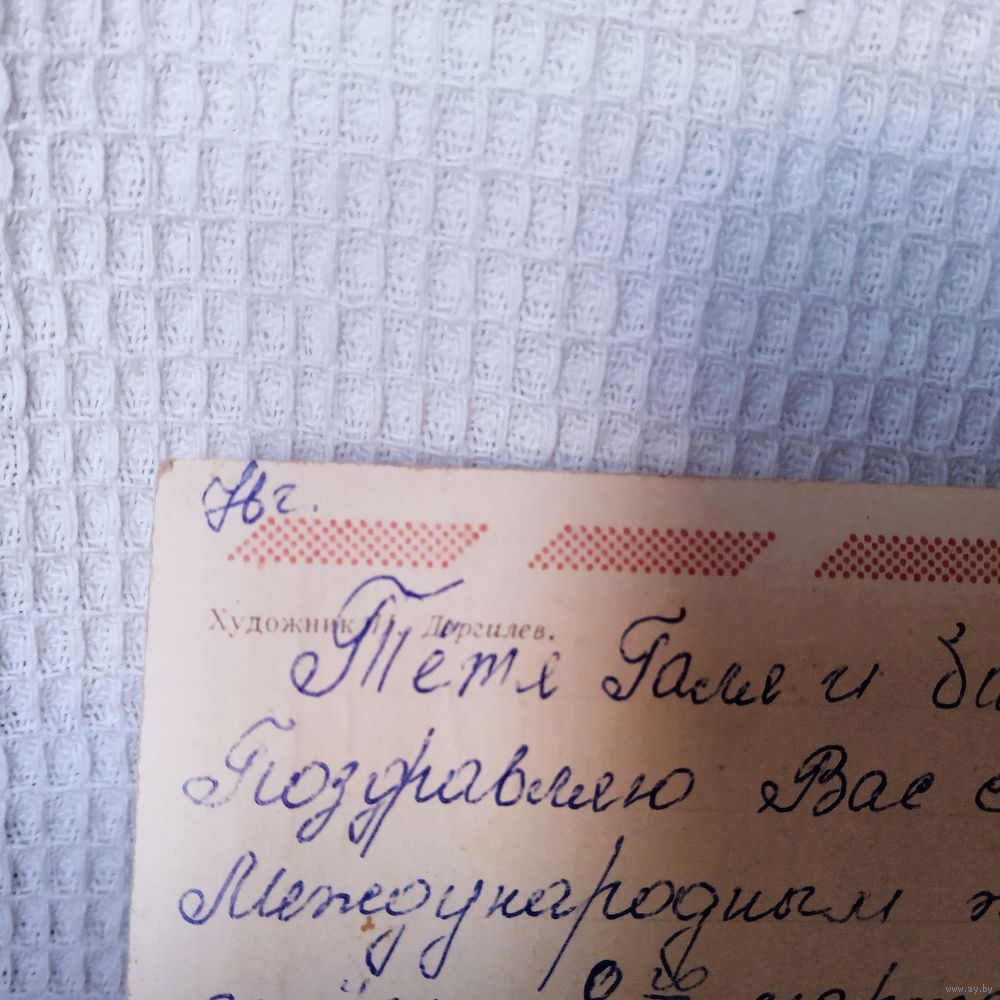 г.
Художник Дергилев.
Тётя Галя и
Поздравляю Вас с
Международным
8 марта
www.ay.by